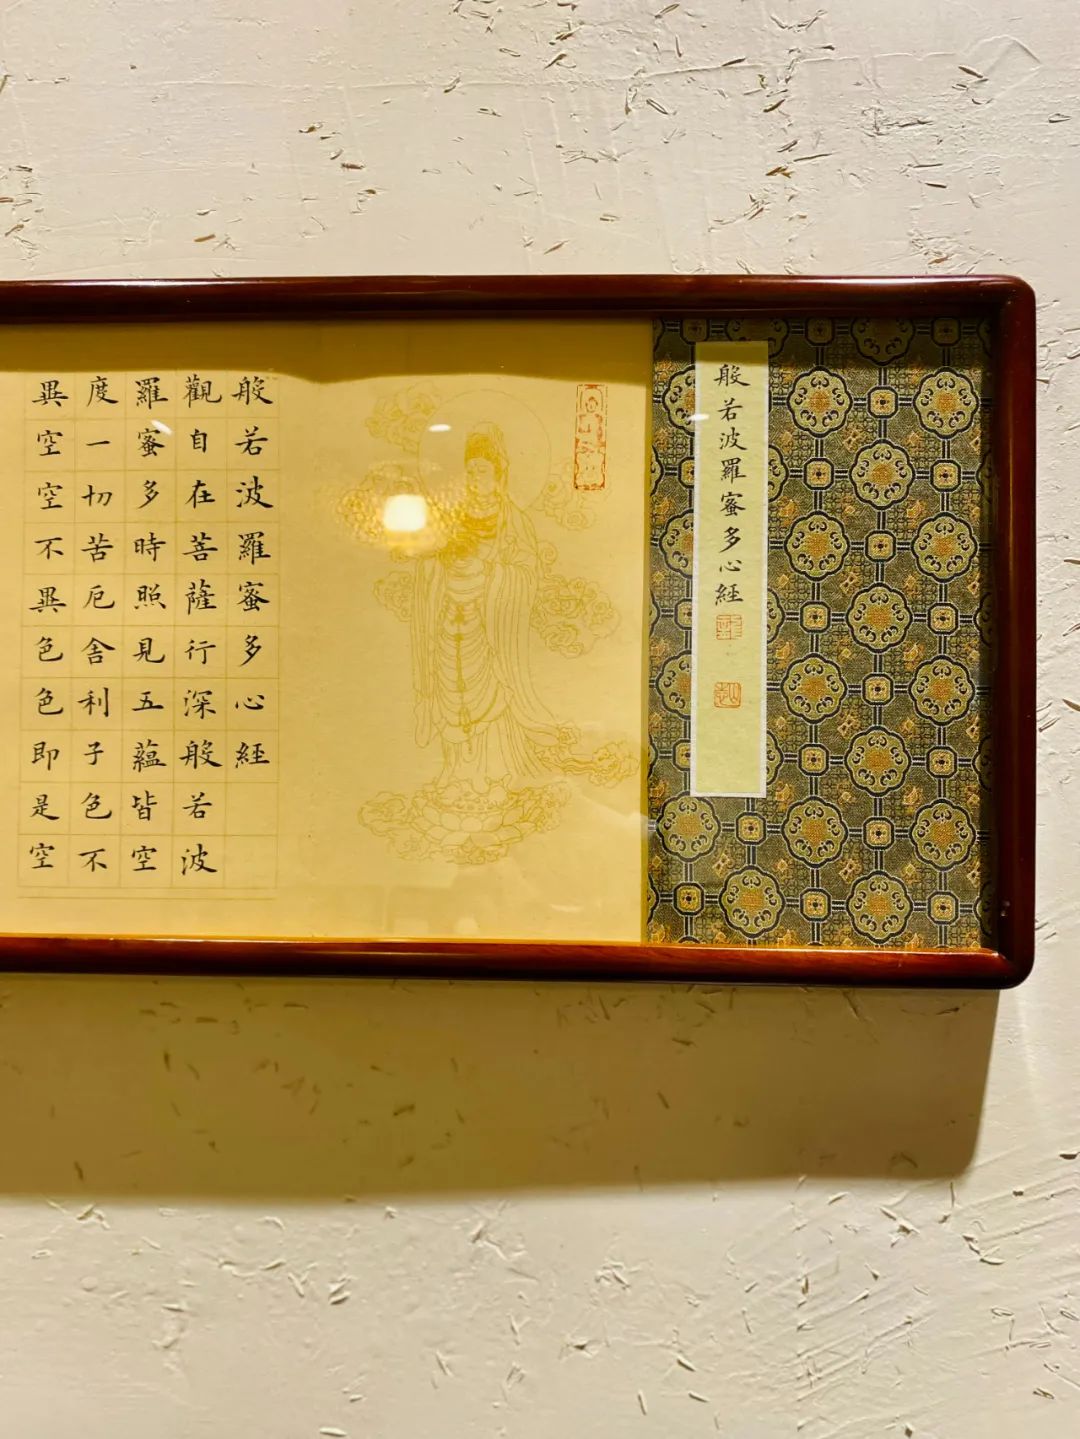 般若波羅蜜多心経
般若波羅蜜多心経
觀自在菩薩行深般若波
羅蜜多時照見五蘊皆空
度一切苦厄舍利子色不
異空空不異色色即是空